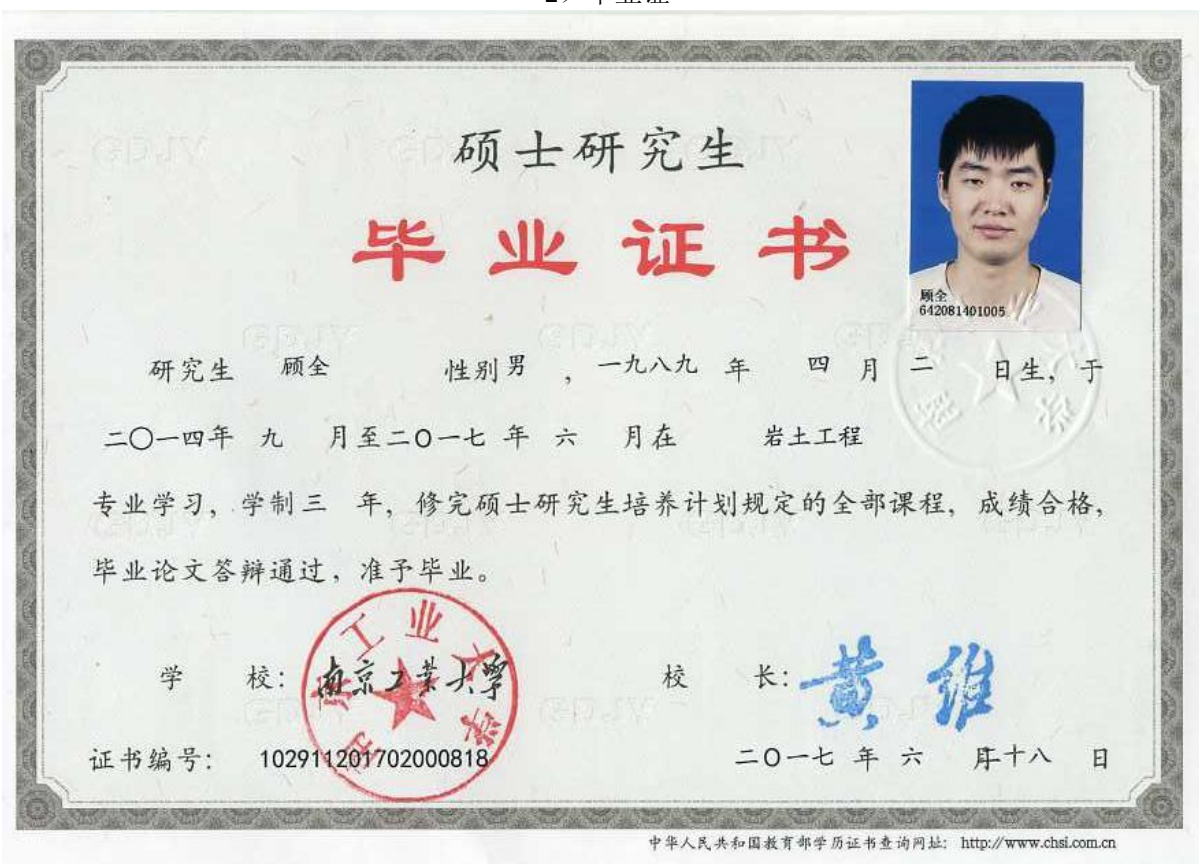 2、毕业证
硕士研究生
毕业证书
顾全
642081401005
研究生 顾全 性别 男 , 一九八九 年 四 月 二 日生, 于
二〇一四年 九 月至二〇一七 年 六 月在 岩土工程
专业学习, 学制 三 年, 修完硕士研究生培养计划规定的全部课程, 成绩合格,
毕业论文答辩通过, 准予毕业。
学 校: 南京工业大学
校 长: 黄维
南京工业大学
证书编号: 102911201702000818
二〇一七 年 六 月十八 日
中华人民共和国教育部学历证书查询网址: http://www.chsi.com.cn